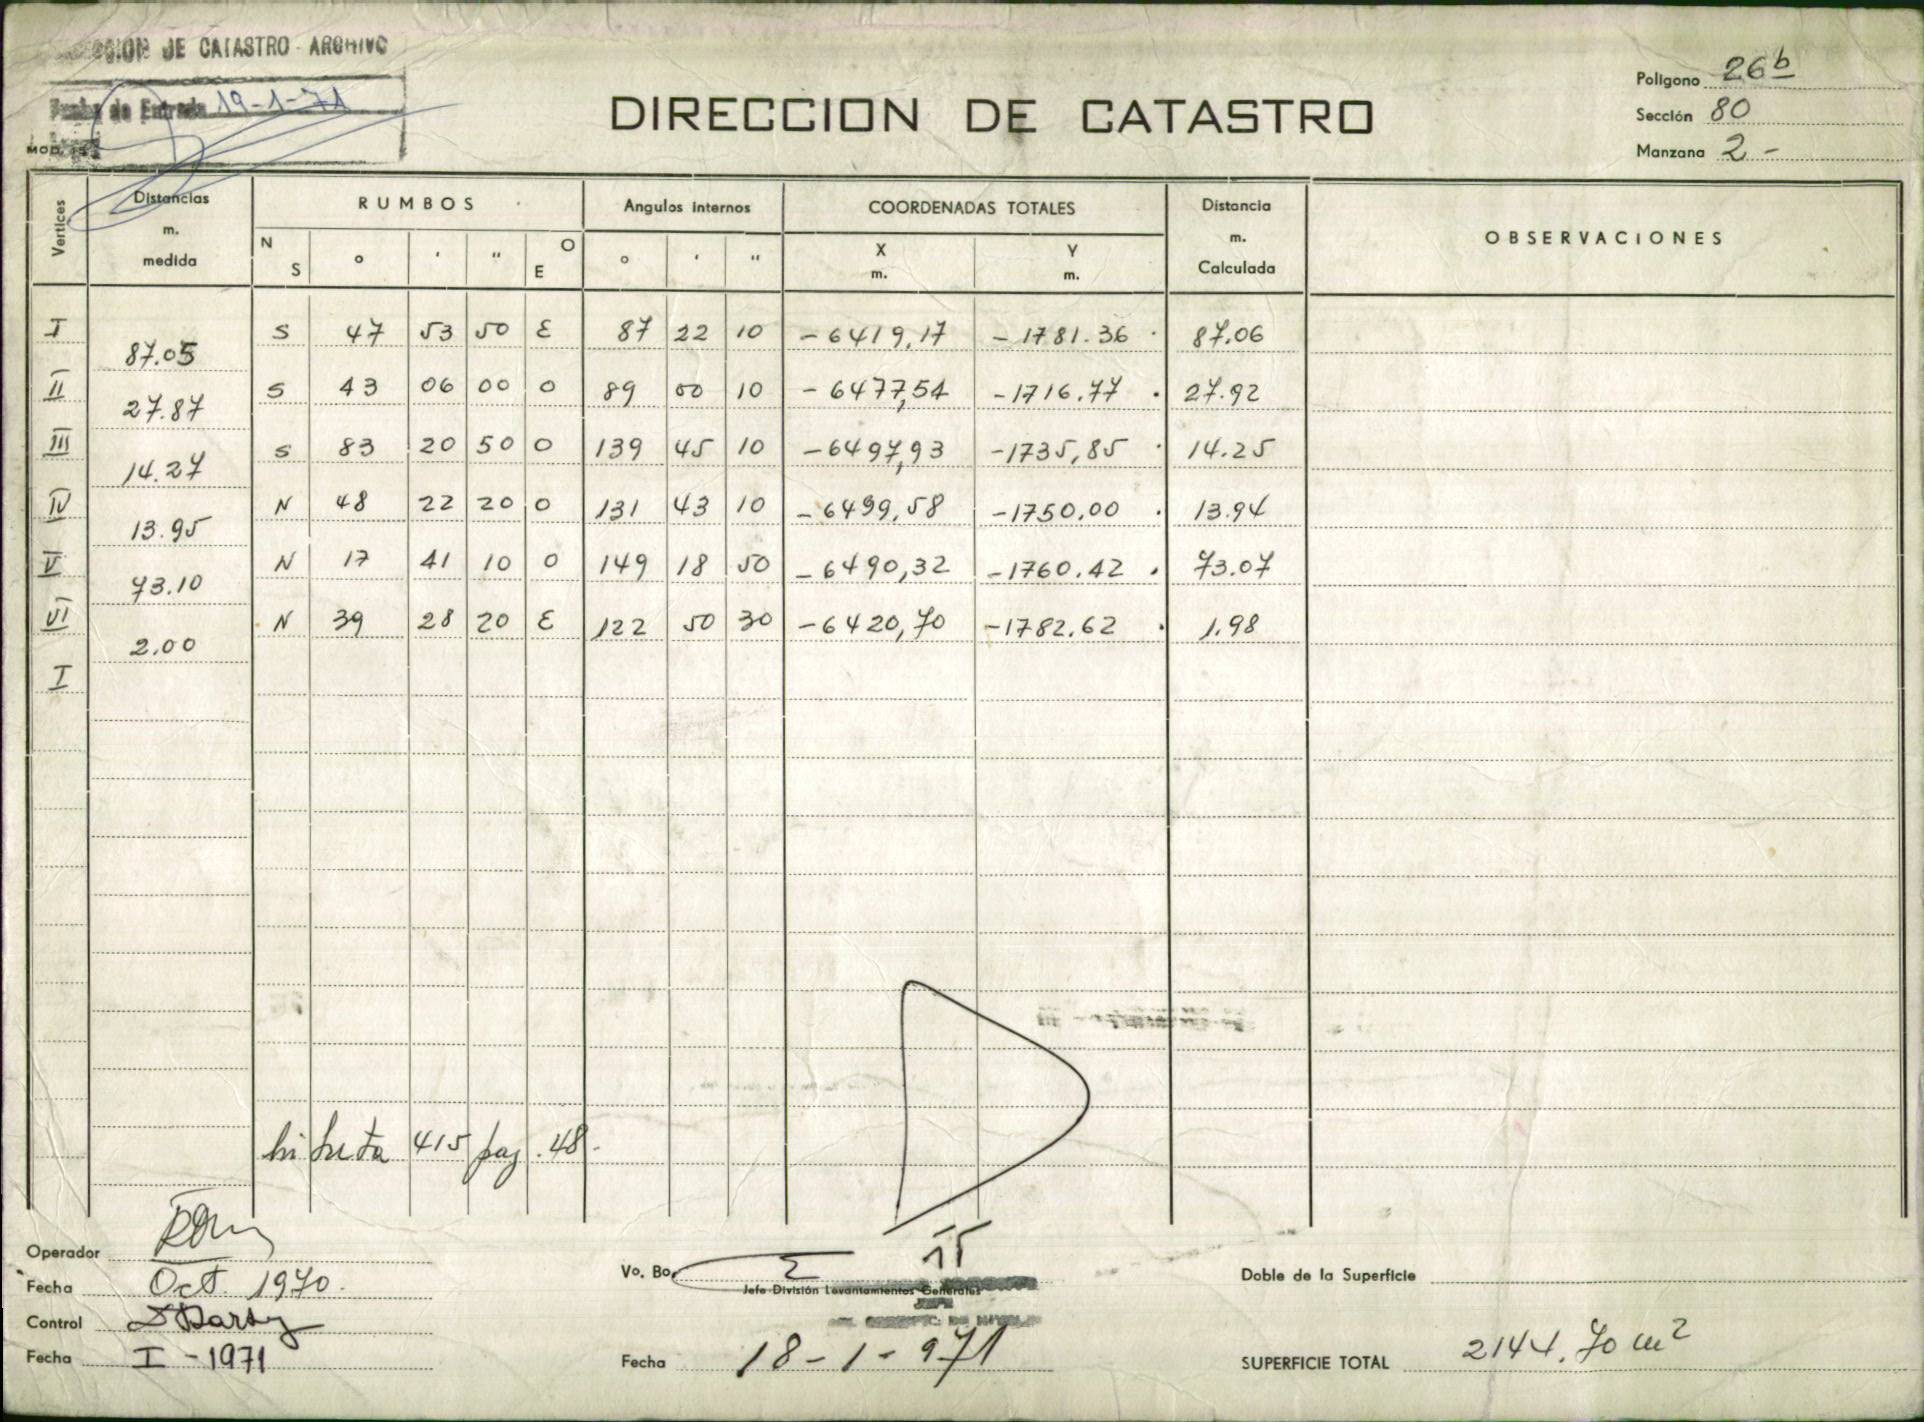 DE CATASTRO - ARCHIVO
de Entrada 19-1-71
MOD.
DIRECCION DE CATASTRO
Poligono 26b
Sección 80
Manzana 2 -
Vertices
Distancias m. medida
RUMBOS
Angulos internos
COORDENADAS TOTALES
Distancia m. Calculada
OBSERVACIONES
N S ° ' " O E ° ' " X m. Y m.
I S 47 53 50 E 87 22 10 -6419,17 -1781.36 87.06
87.05
II S 43 06 00 O 89 00 10 -6477,54 -1716.77 27.92
27.87
III S 83 20 50 O 139 45 10 -6497,93 -1735,85 14.25
14.27
IV N 48 22 20 O 131 43 10 -6499,58 -1750.00 13.94
13.95
V N 17 41 10 O 149 18 50 -6490,32 -1760.42 73.07
73.10
VI N 39 28 20 E 122 50 30 -6420,70 -1782.62 1.98
2.00
I
415 pag. 48.-
Operador
Fecha Oct. 1970.
Control
Fecha I - 1971
Vo. Bo.
Jefe División Levantamientos Generales
Fecha 18-1-971
Doble de la Superficie
SUPERFICIE TOTAL 2144.70 m2